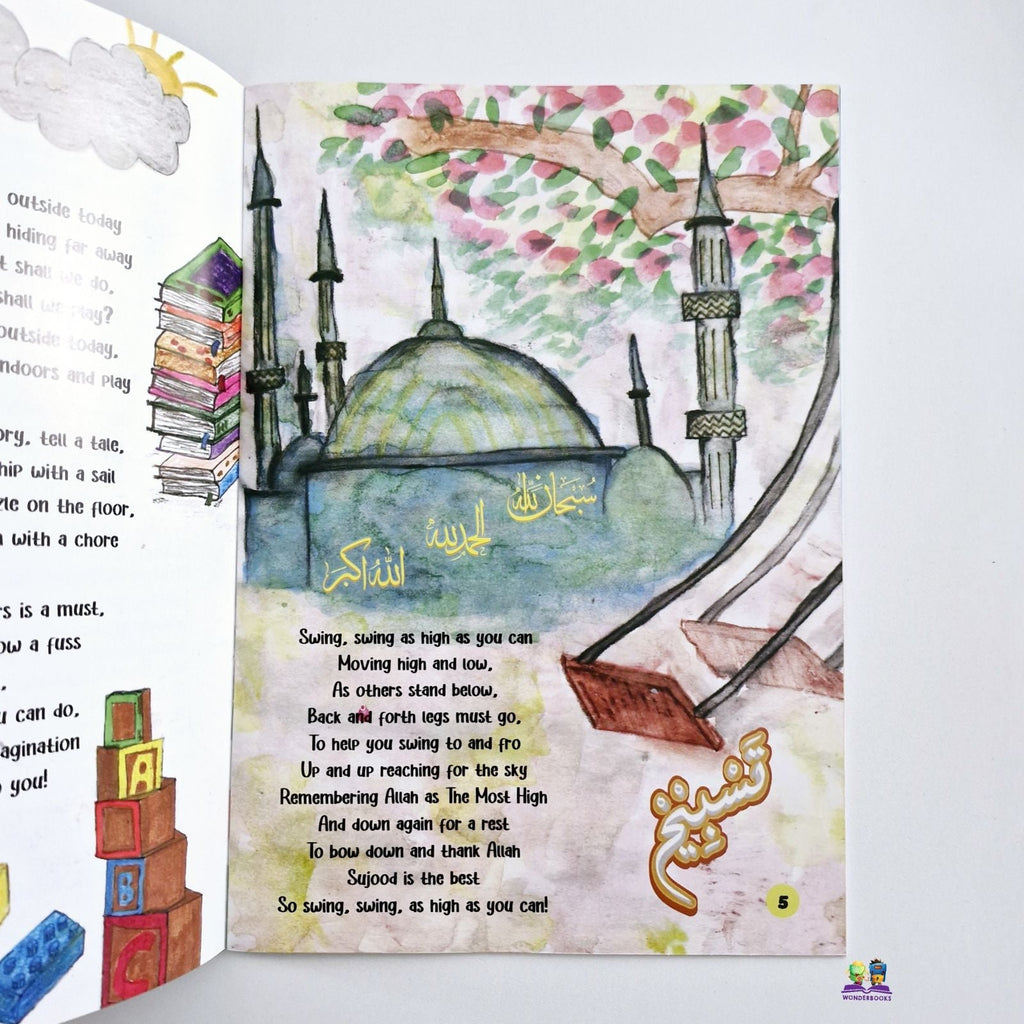 outside today
hiding far away
shall we do,
shall we play?
outside today,
indoors and play
tell a tale,
with a sail
on the floor,
with a chore
is a must,
a fuss
can do,
you!
A
B
C
سُبْحَانَ اللّٰه
الحمد لله
اللّٰهُ أكبَر
Swing, swing as high as you can
Moving high and low,
As others stand below,
Back and forth legs must go,
To help you swing to and fro
Up and up reaching for the sky
Remembering Allah as The Most High
And down again for a rest
To bow down and thank Allah
Sujood is the best
So swing, swing, as high as you can!
تَسْبِيْح
5
WONDERBOOKS